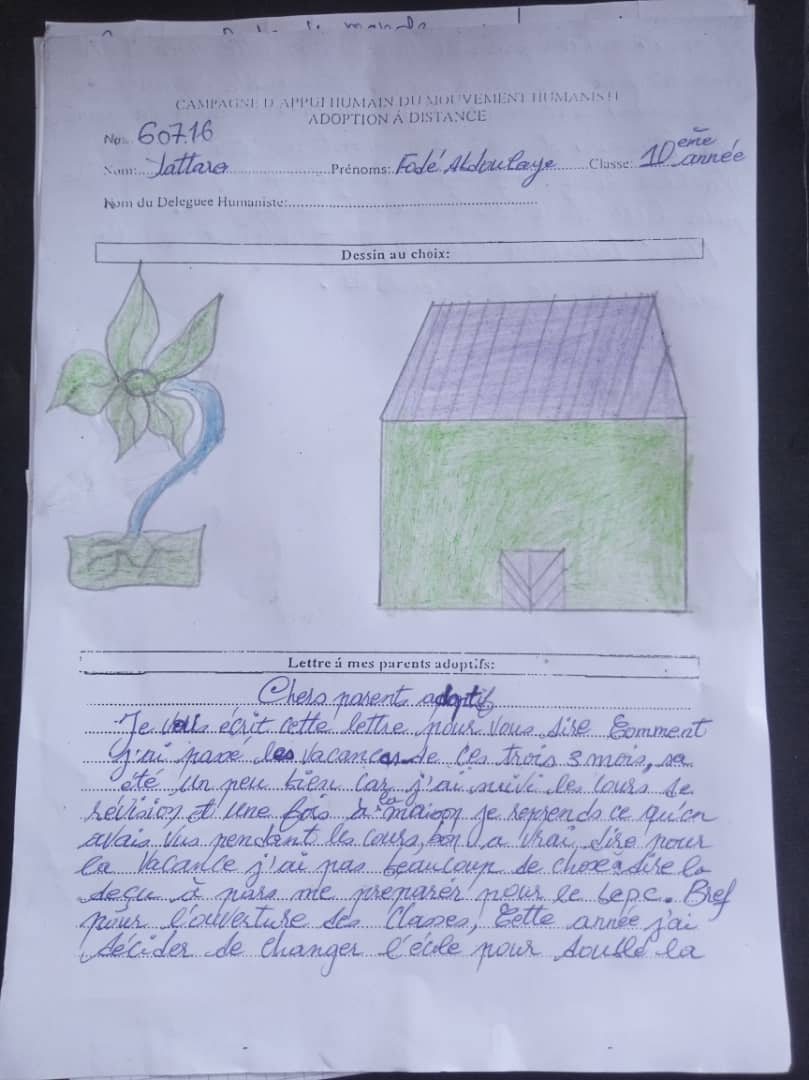 CAMPAGNE D'APPUI HUMAIN DU MOUVEMENT HUMANISTE
ADOPTION Á DISTANCE
No:. 60716
Nom:..Tattara.....Prénoms:.Fodé Abdoulaye.....Classe:.10ème année
Nom du Deleguee Humaniste:
Dessin au choix:
Lettre á mes parents adoptifs:
Chers parent adoptif
Je vous écrit cette lettre pour vous dire Comment
j'ai passé les vacances de ces trois 3 mois, sa
été un peu bien car j'ai suivi les cours de
révision et une fois à la maison je reprends ce qu'on
avais vus pendant les cours, bon a vrai dire pour
la vacance j'ai pas beaucoup de chose a dire la
deçu à pars me préparer pour le bepc. Bref
pour l'ouverture des classes, Cette année j'ai
décider de changer l'école pour doublé la